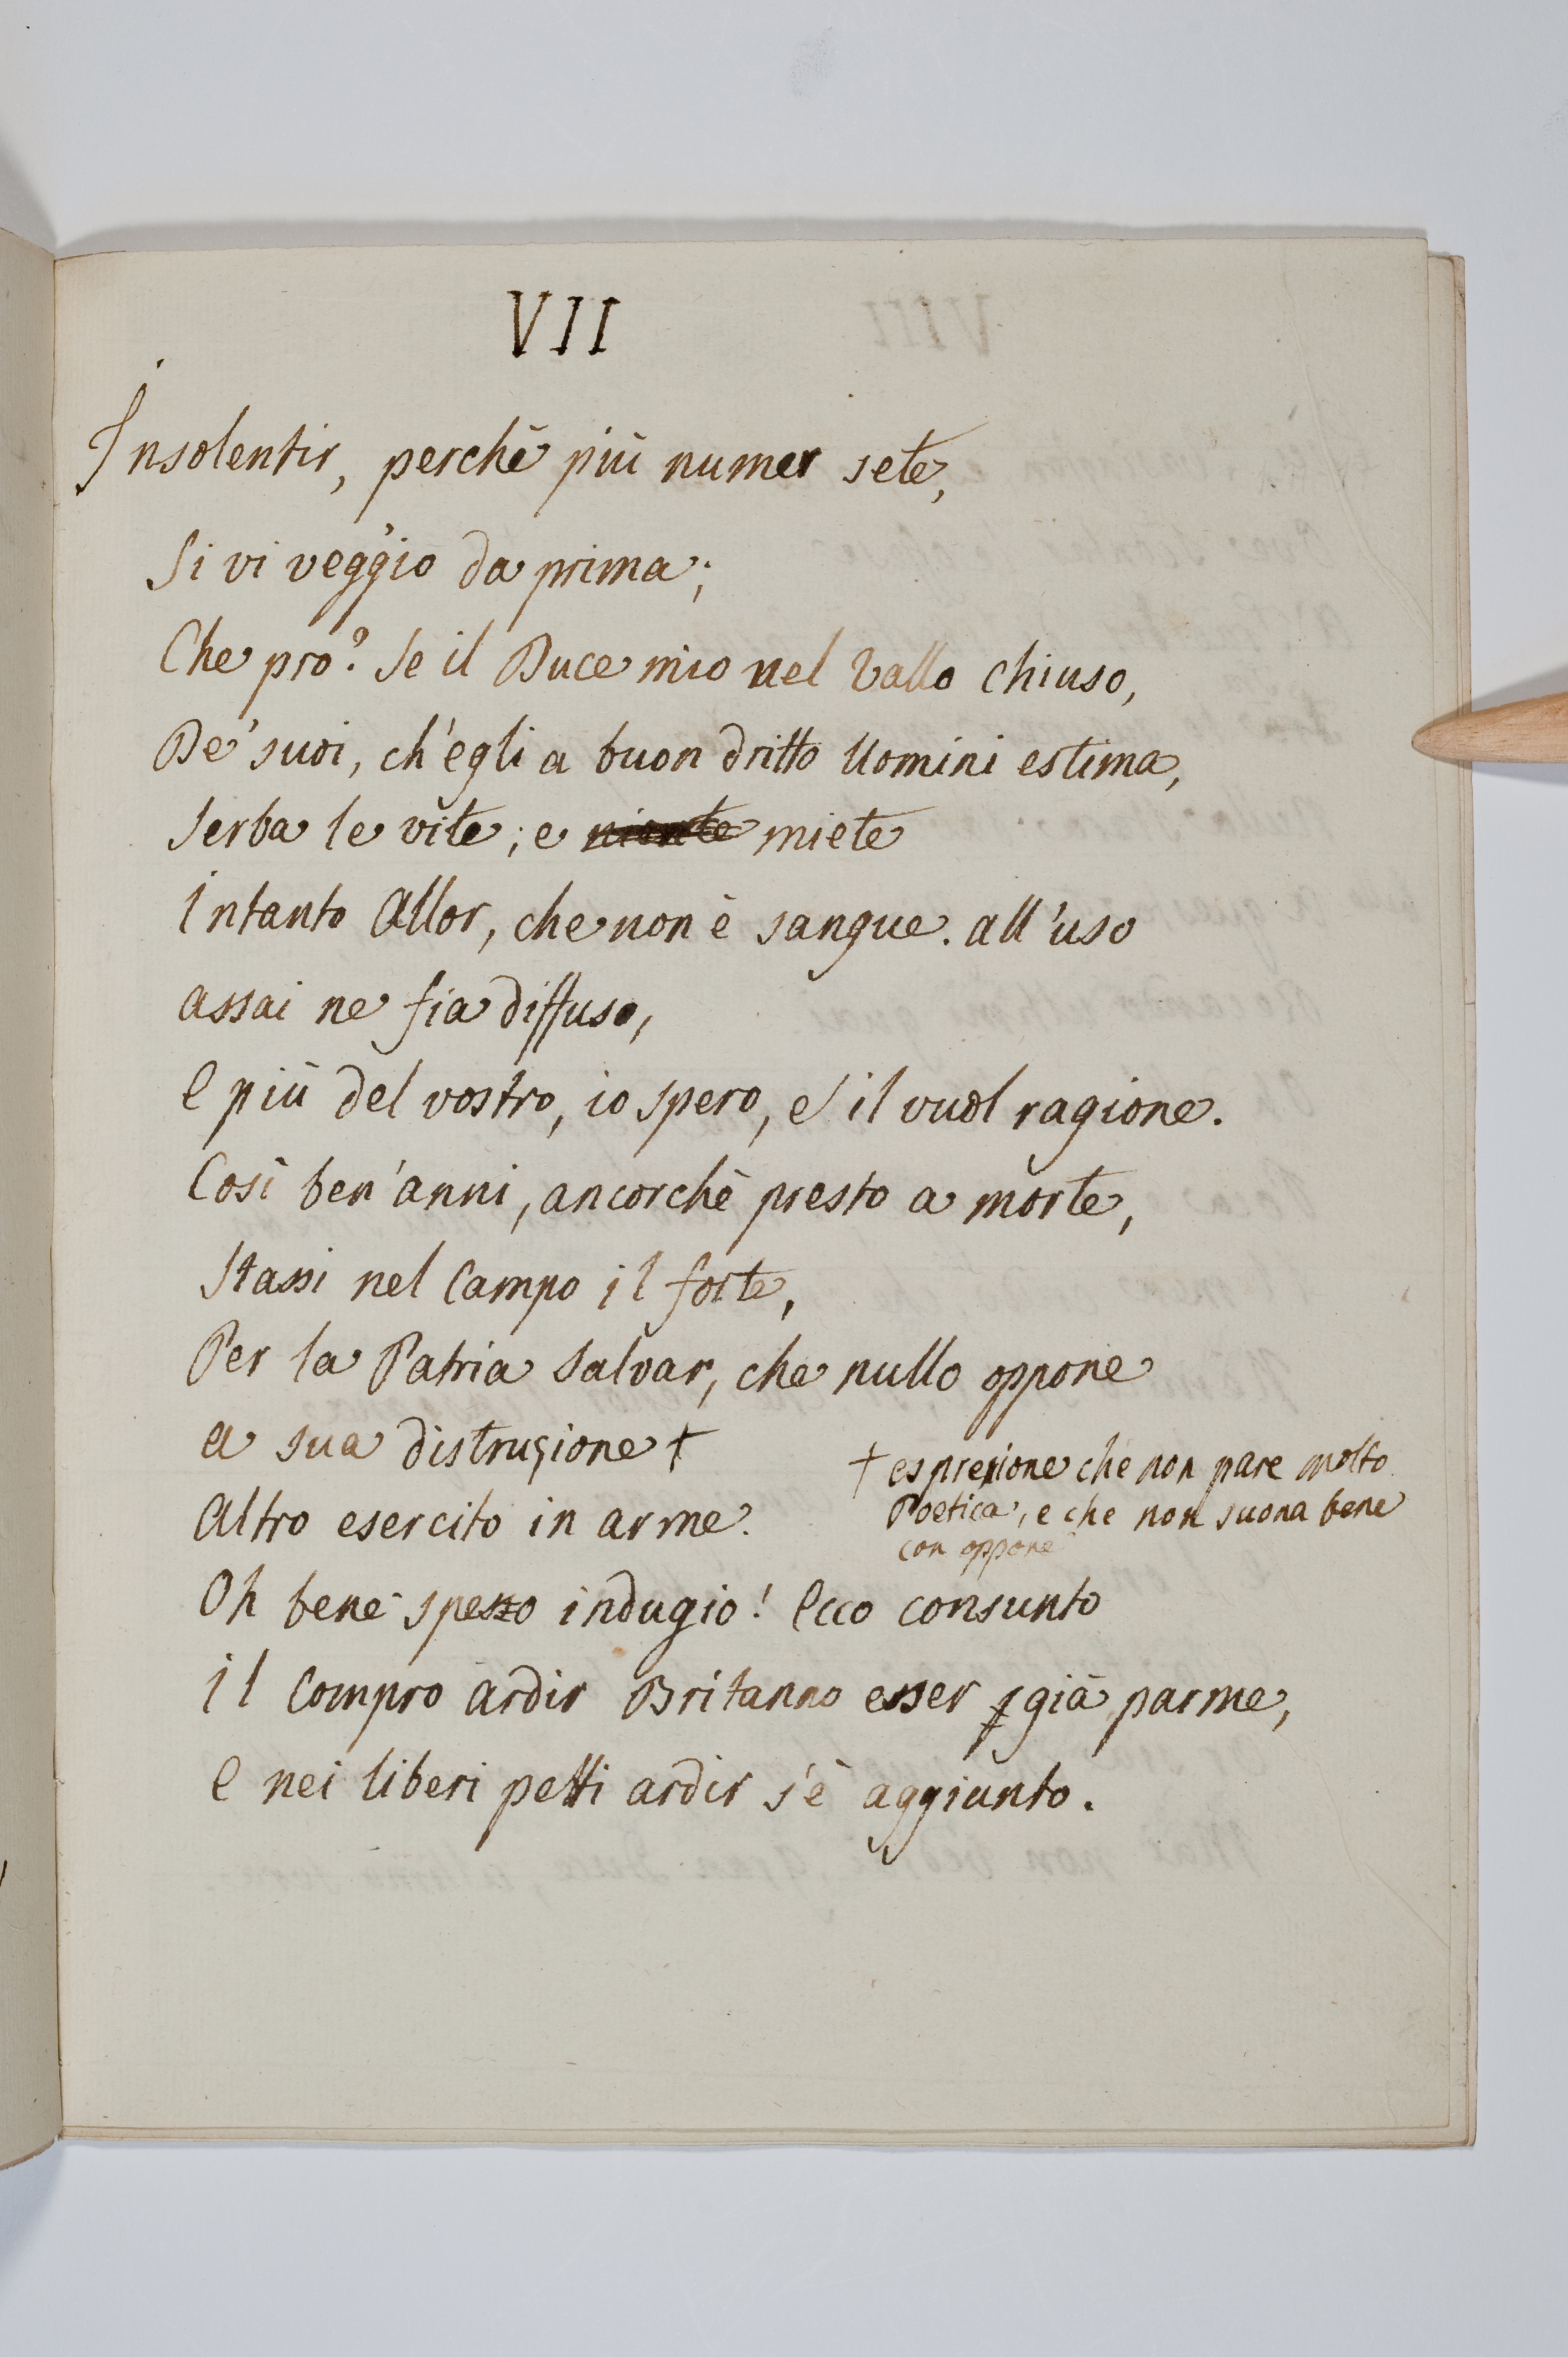 VII
Insolentir, perchè più numer sete,
Si vi veggio da prima;
Che pro? Se il Duce mio nel Vallo chiuso,
De' suoi, ch'egli a buon dritto Uomini estima,
Serba le vite; e niente miete
Intanto Allor, che non è sangue. all'uso
assai ne fia diffuso,
E più del vostro, io spero, e il vuol ragione.
Così ben' anni, ancorchè presto a morte,
Stassi nel Campo il forte,
Per la Patria Salvar, che nullo oppone
a sua distruzione †
† espressione che non pare molto
Poetica, e che non suona bene
con oppone
Altro esercito in arme.
Oh bene spesso indugio! Ecco consunto
il Compro ardir Britanno esser già parme,
E nei liberi petti ardir s'è aggiunto.